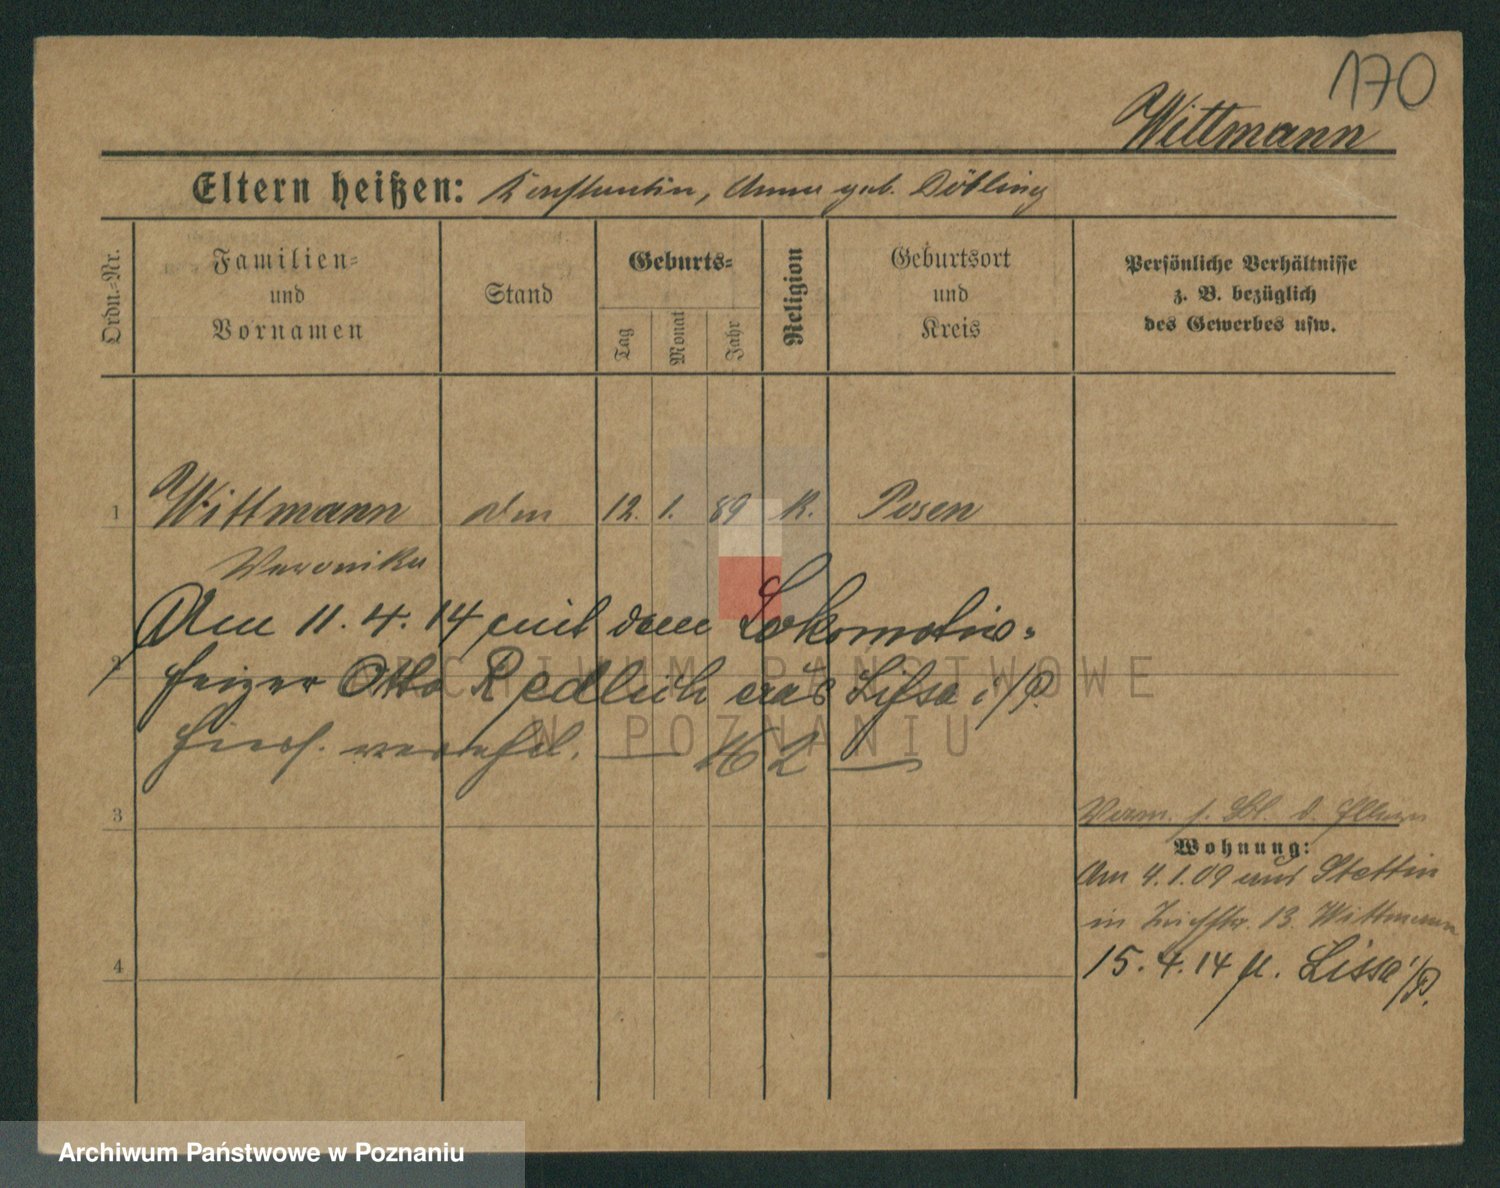 170
Wittmann
Eltern heißen: Konstantin, Anna geb. Döbling
Ordn.-Nr.
Familien- und Vornamen
Stand
Geburts-
Tag
Monat
Jahr
Religion
Geburtsort und Kreis
Persönliche Verhältnisse z. B. bezüglich des Gewerbes usw.
1 Wittmann 12. 1. 89 K. Posen
Veronika
Am 11. 4. 14 mit dem Lokomotiv-
2 heizer Otto Redlich aus Lissa i/P.
hiers. verehel. — H 2 —
3
Wohnung:
Am 4. 1. 09 aus Stettin
in 13. Wittmann
15. 4. 14 n. Lissa i/P.
4
ARCHIWUM PAŃSTWOWE
W POZNANIU
Archiwum Państwowe w Poznaniu